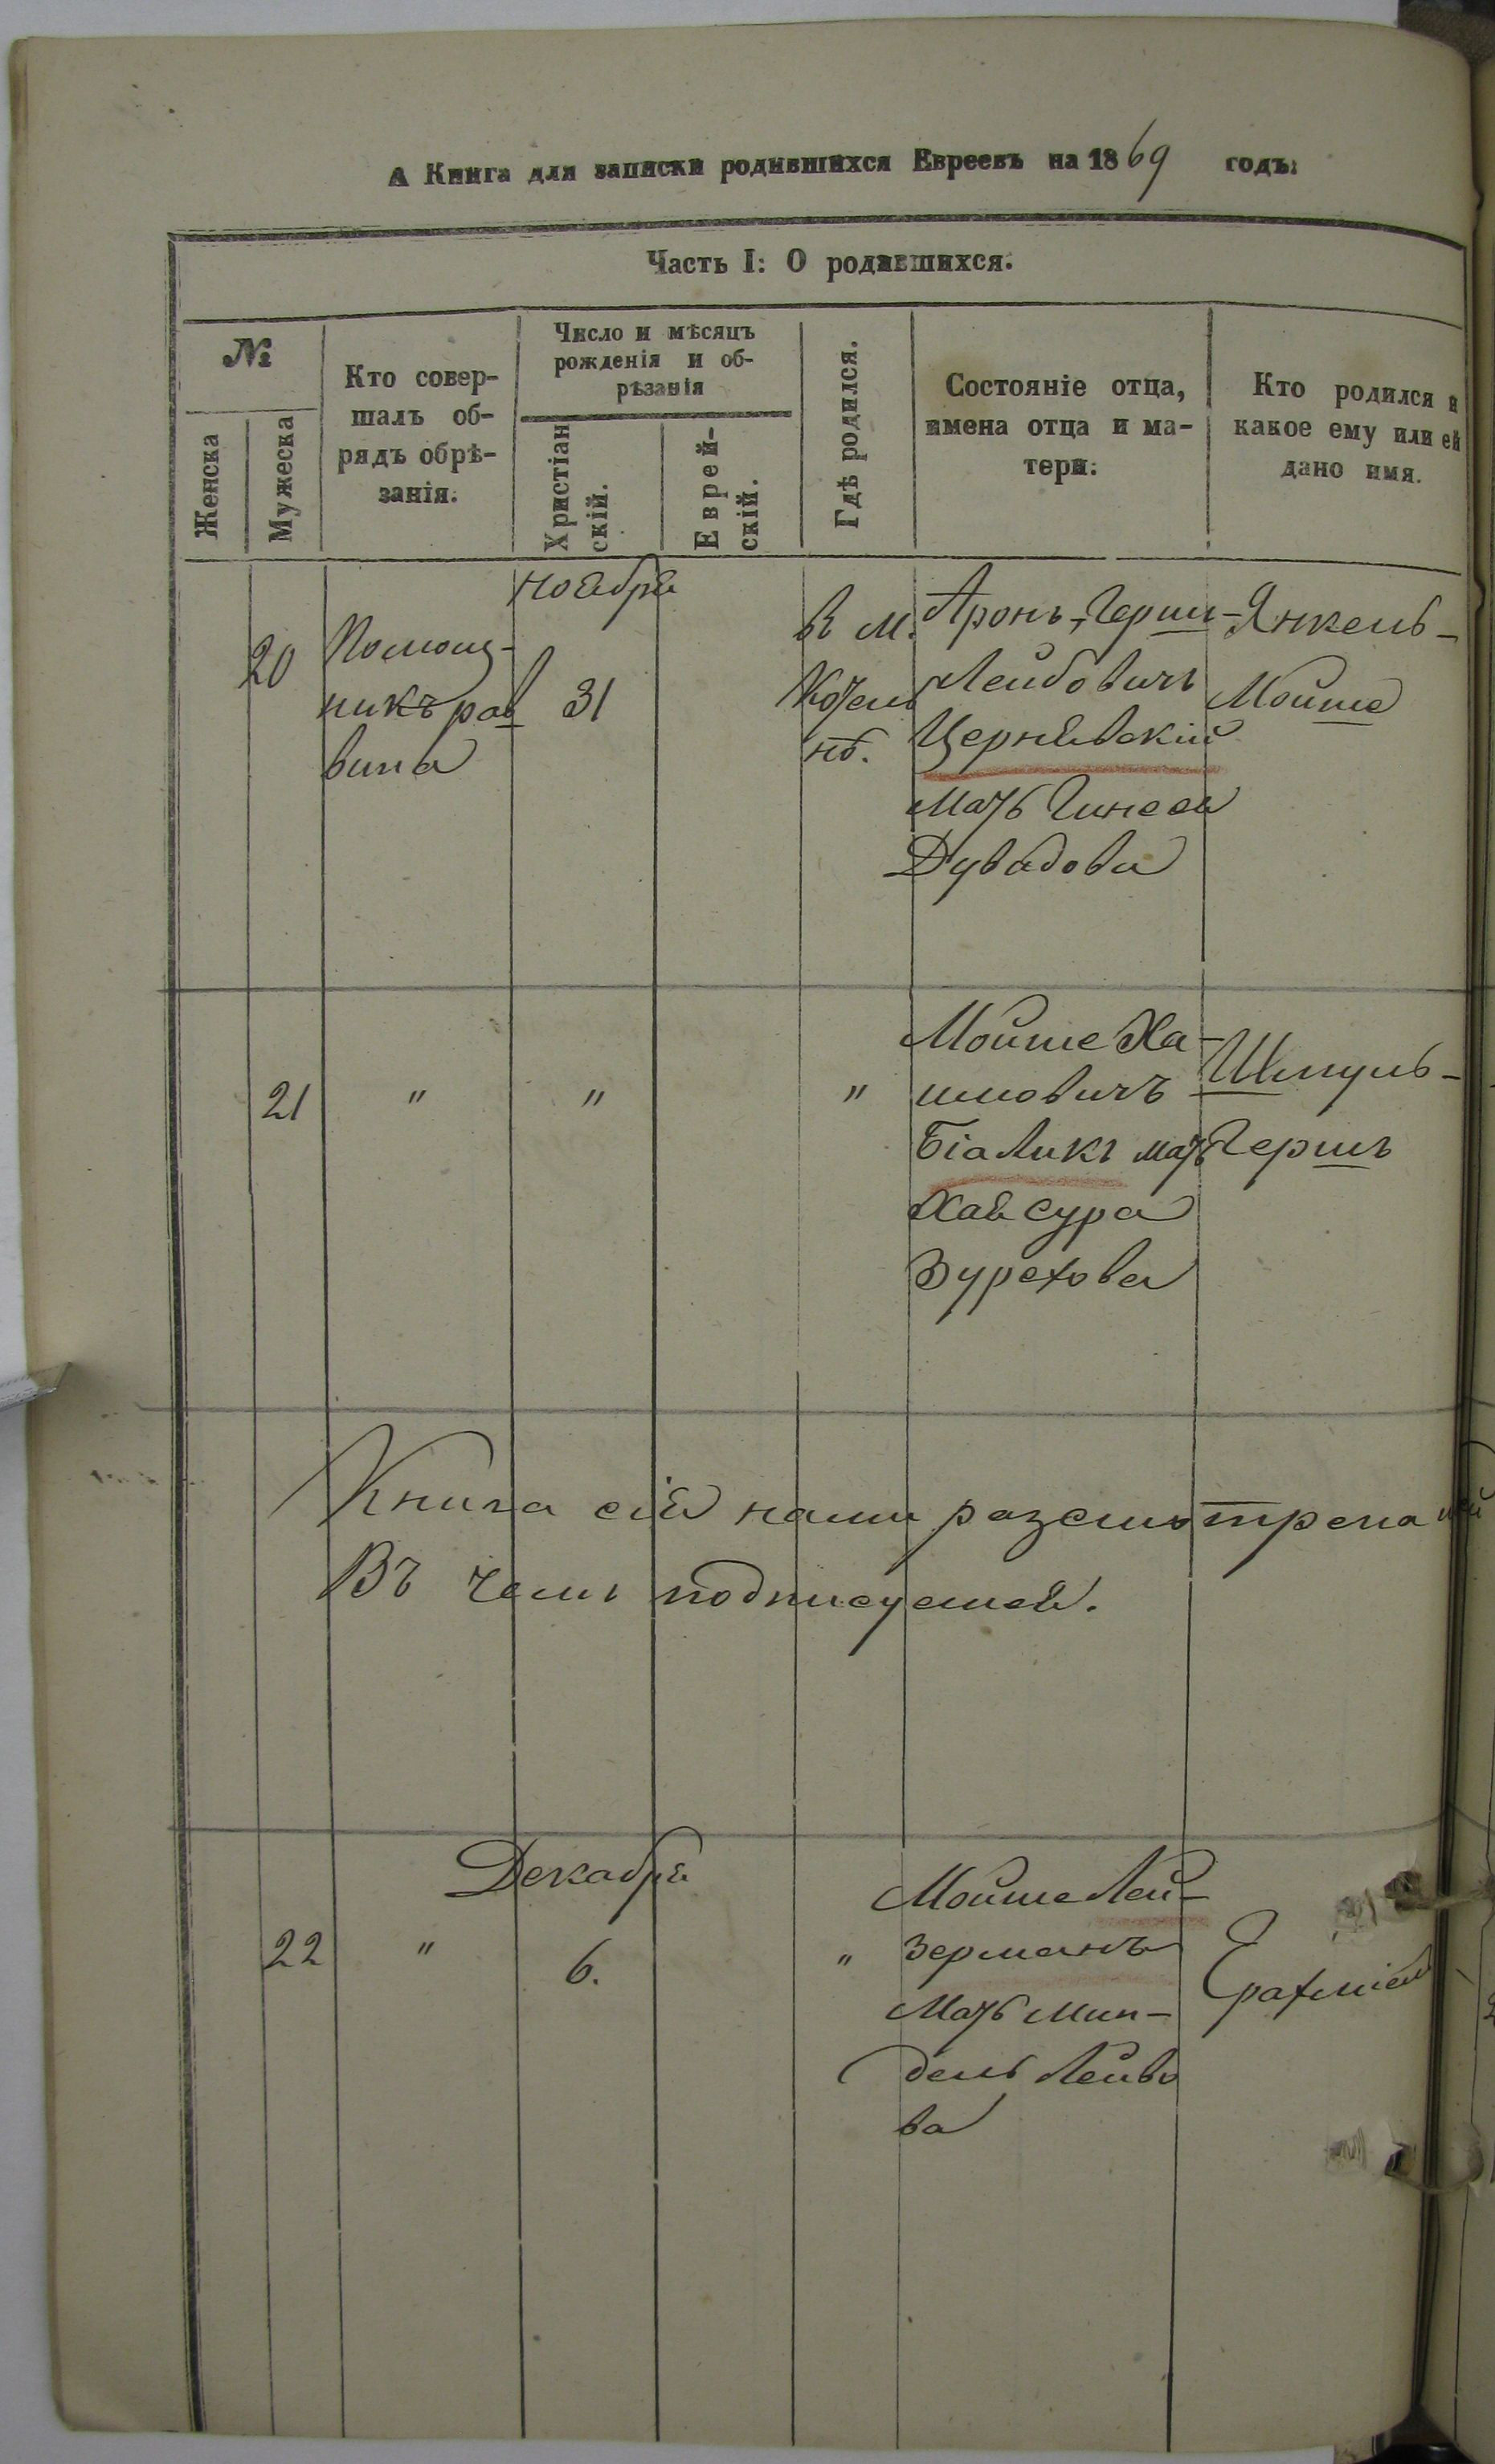 А Книга для записки родившихся Евреевъ на 1869 годъ:
Часть I: О родившихся.
№
Женска
Мужеска
Кто совер-
шалъ об-
рядъ обрѣ-
занія.
Число и мѣсяцъ
рожденія и об-
рѣзанія
Христіан
скій.
Еврей-
скій.
Гдѣ родился.
Состояніе отца,
имена отца и ма-
тери.
Кто родился и
какое ему или ей
дано имя.
Ноября
20
Помощ-
никъ рав
вина
31
В м.
Аронъ-Герш-
Лейбовичъ
Чернявскій
мать
Янкель-
Мойше
21
"
"
"
Мойше Ха-
имовичъ
Біаликъ мать
Хая Сура
Шмуль-
Гершъ
Книга сія нами разсмотрена
Въ чемъ подписуемся.
Декабря
22
"
6.
"
Мойше Лей-
зерманъ
Мать Мин-
дель Лейбо
ва